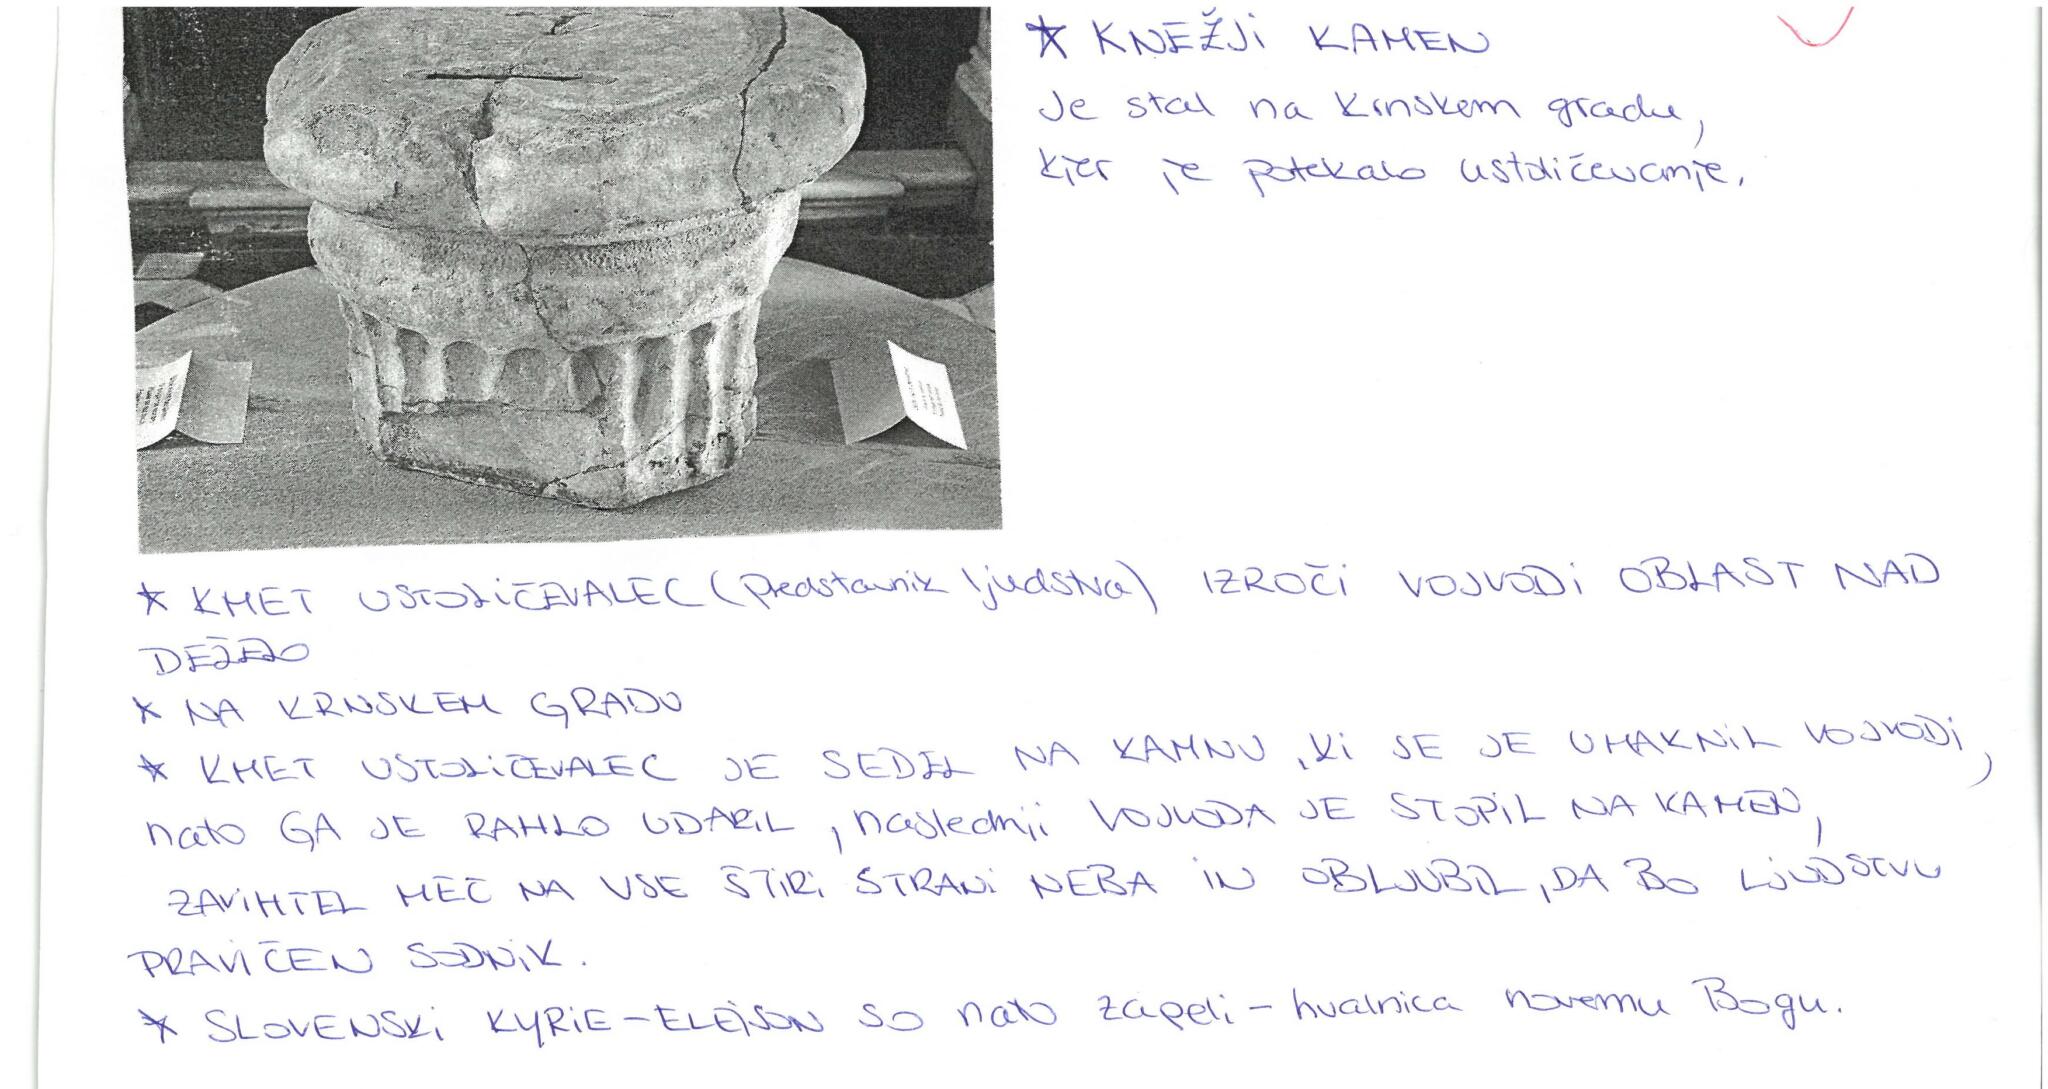 * KNEŽJI KAMEN
Je stal na Krnskem gradu,
kjer je potekalo ustoličevanje.
* KMET USTOLIČEVALEC (predstavnik ljudstva) IZROČI VOJVODI OBLAST NAD
DEŽELO
* NA KRNSKEM GRADU
* KMET USTOLIČEVALEC JE SEDEL NA KAMNU, KI SE JE UMAKNIL VOJVODI,
nato GA JE RAHLO UDARIL, naslednji VOJVODA JE STOPIL NA KAMEN,
ZAVIHTEL MEČ NA VSE ŠTIRI STRANI NEBA IN OBLJUBIL, DA BO LJUDSTVU
PRAVIČEN SODNIK.
* SLOVENSKI KYRIE-ELEJSON SO nato zapeli - hvalnica novemu Bogu.